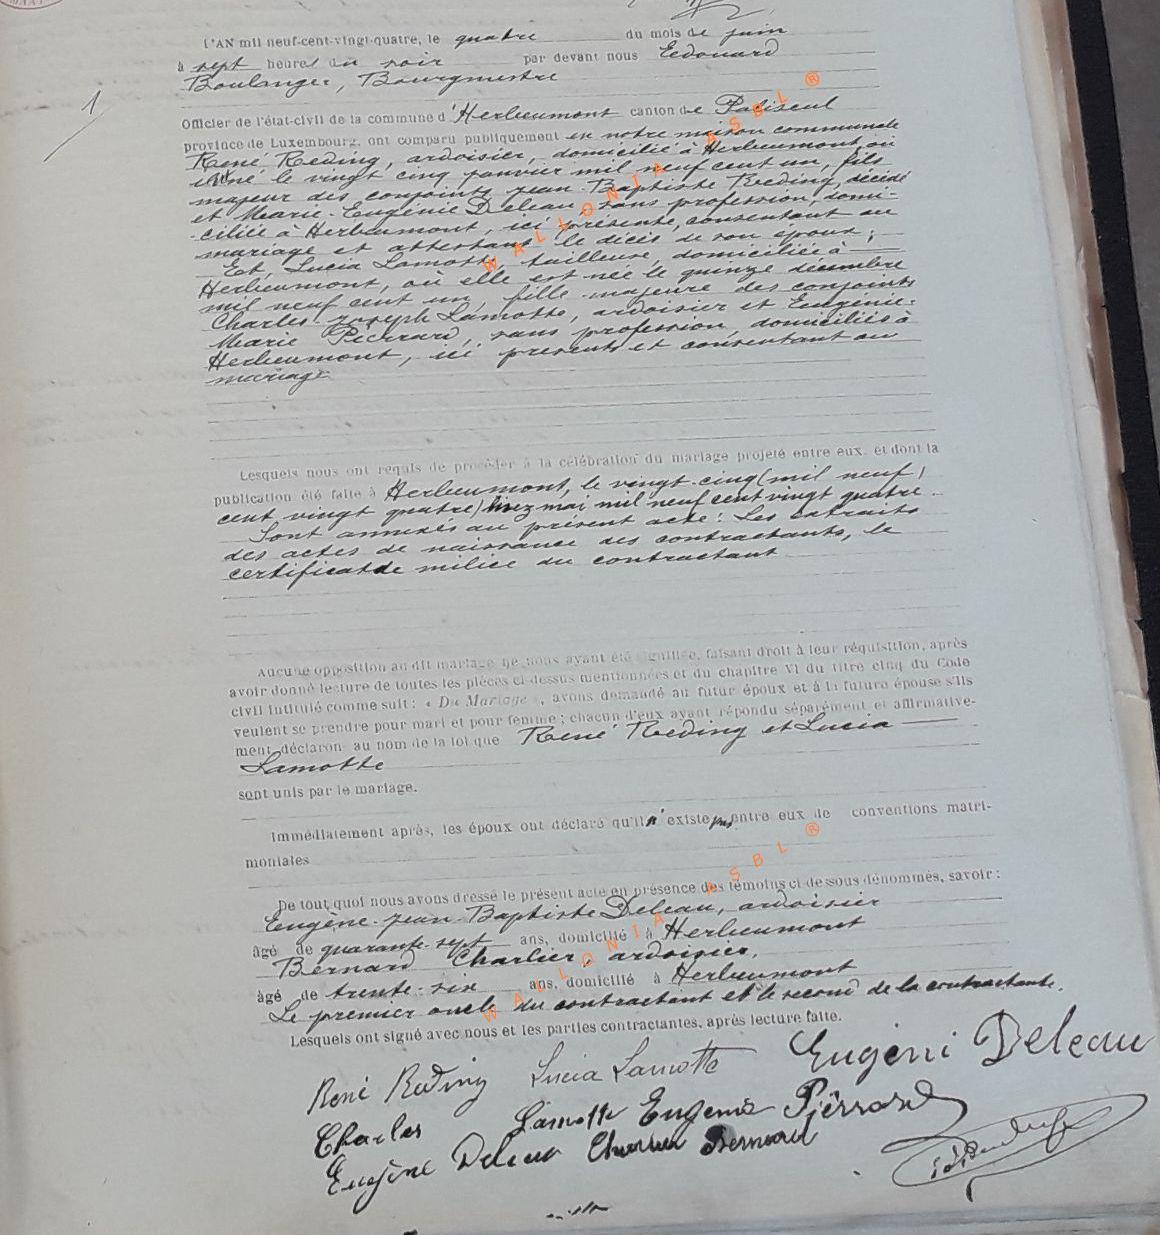 1
L'AN mil neuf-cent-vingt-quatre, le quatre du mois de juin
à sept heures du soir par devant nous Edouard
Boulanger, Bourgmestre
Officier de l'état-civil de la commune d'Herbeumont canton de Paliseul
province de Luxembourg, ont comparu publiquement en notre maison communale
René Reding, ardoisier, domicilié à Herbeumont, où
il est né le vingt cinq janvier mil neuf cent un, fils
majeur des conjoints Jean-Baptiste Reding, décédé
et Marie-Eugénie Deleau, sans profession, domi-
-ciliée à Herbeumont, ici présente, consentant au
mariage et attestant le décès de son époux;
Et, Lucia Lamotte, tailleuse, domiciliée à
Herbeumont, où elle est née le quinze décembre
mil neuf cent un, fille majeure des conjoints
Charles-Joseph Lamotte, ardoisier et Eugénie-
Marie Piérrard, sans profession, domiciliés à
Herbeumont, ici présents et consentant au
mariage
Lesquels nous ont requis de procéder à la célébration du mariage projeté entre eux, et dont la
publication été faite à Herbeumont, le vingt-cinq (mil neuf)
cent vingt quatre) lisez mai mil neuf cent vingt quatre.
Sont annexés au présent acte: Les extraits
des actes de naissance des contractants, le
certificat de milice du contractant
Aucune opposition au dit mariage ne nous ayant été signifiée, faisant droit à leur réquisition, après
avoir donné lecture de toutes les pièces ci-dessus mentionnées et du chapitre VI du titre cinq du Code
civil intitulé comme suit : « Du Mariage », avons demandé au futur époux et à la future épouse s'ils
veulent se prendre pour mari et pour femme ; chacun d'eux ayant répondu séparément et affirmative-
ment déclarons au nom de la loi que René Reding et Lucia
Lamotte
sont unis par le mariage.
Immédiatement après, les époux ont déclaré qu'il n'existe pas entre eux de conventions matri-
moniales
De tout quoi nous avons dressé le présent acte en présence des témoins ci-dessous dénommés, savoir :
Eugène-Jean-Baptiste Deleau, ardoisier
âgé de quarante-sept ans, domicilié à Herbeumont
Bernard Charlier, ardoisier,
âgé de trente-six ans, domicilié à Herbeumont
Le premier oncle du contractant et le second de la contractante.
Lesquels ont signé avec nous et les parties contractantes, après lecture faite.
René Reding Lucia Lamotte Eugéni Deleau
Charles Lamotte Eugenie Piérrard
Eugène Deleau Charlier Bernard
WALLONIA ASBL ®
WALLONIA ASBL ®